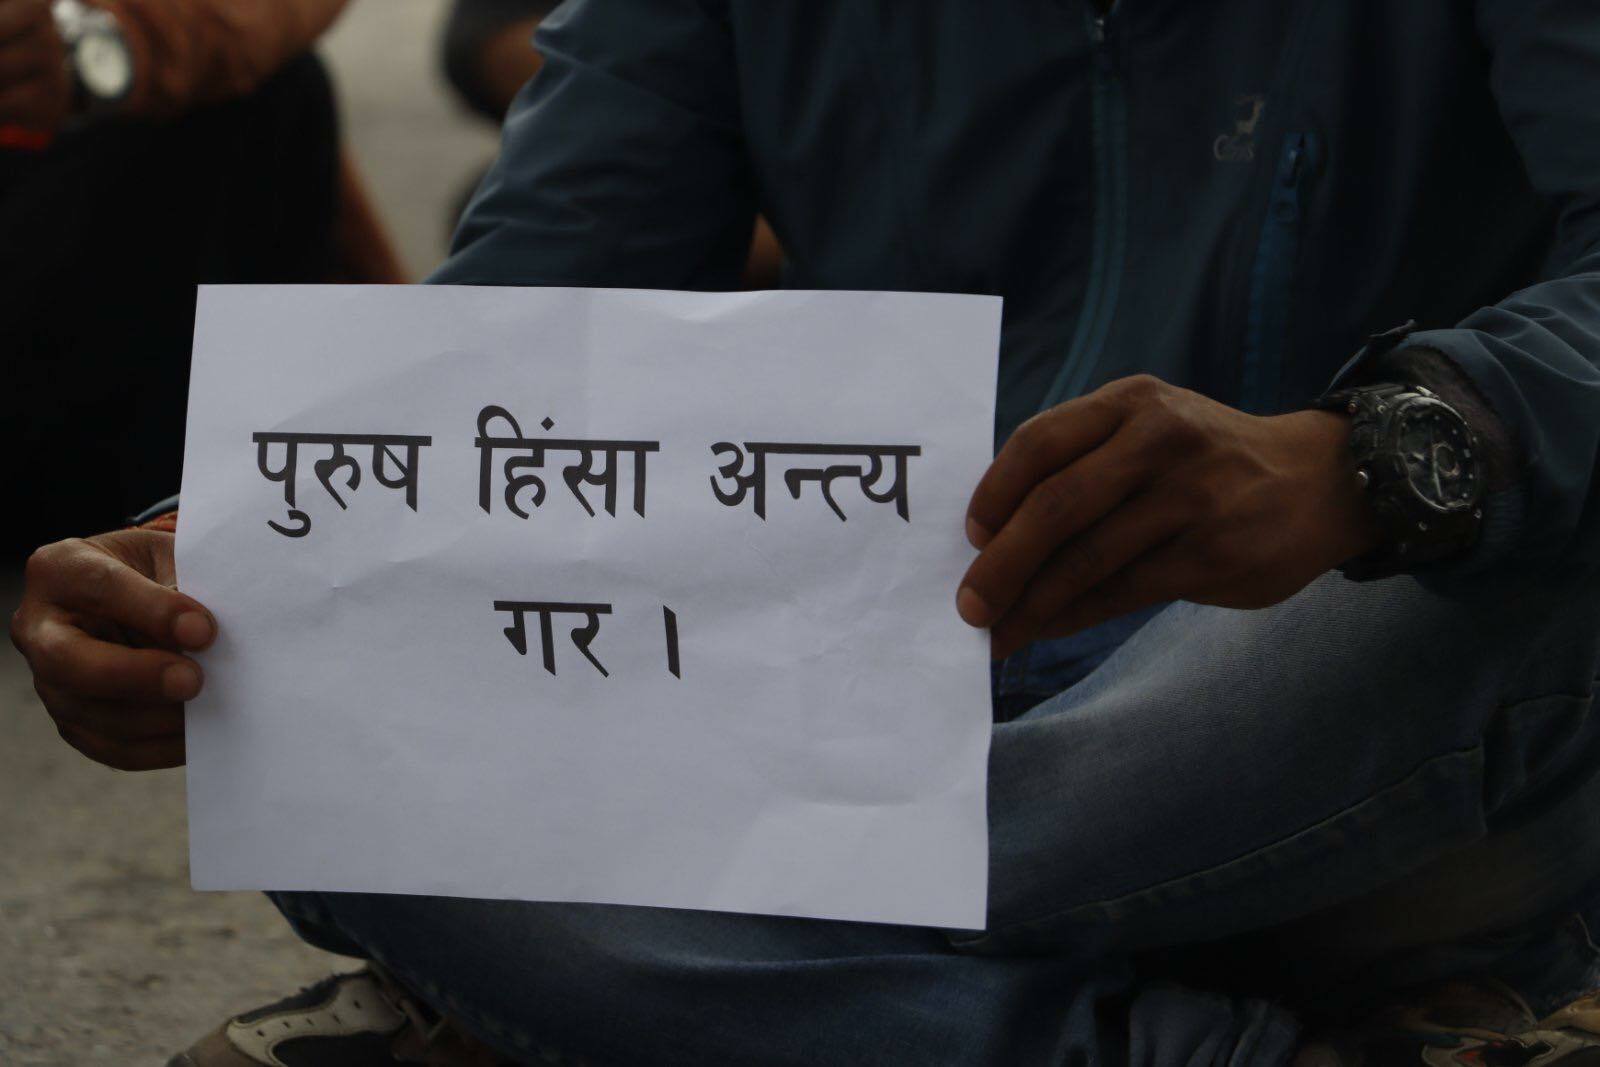 पुरुष हिंसा अन्त्य
गर ।